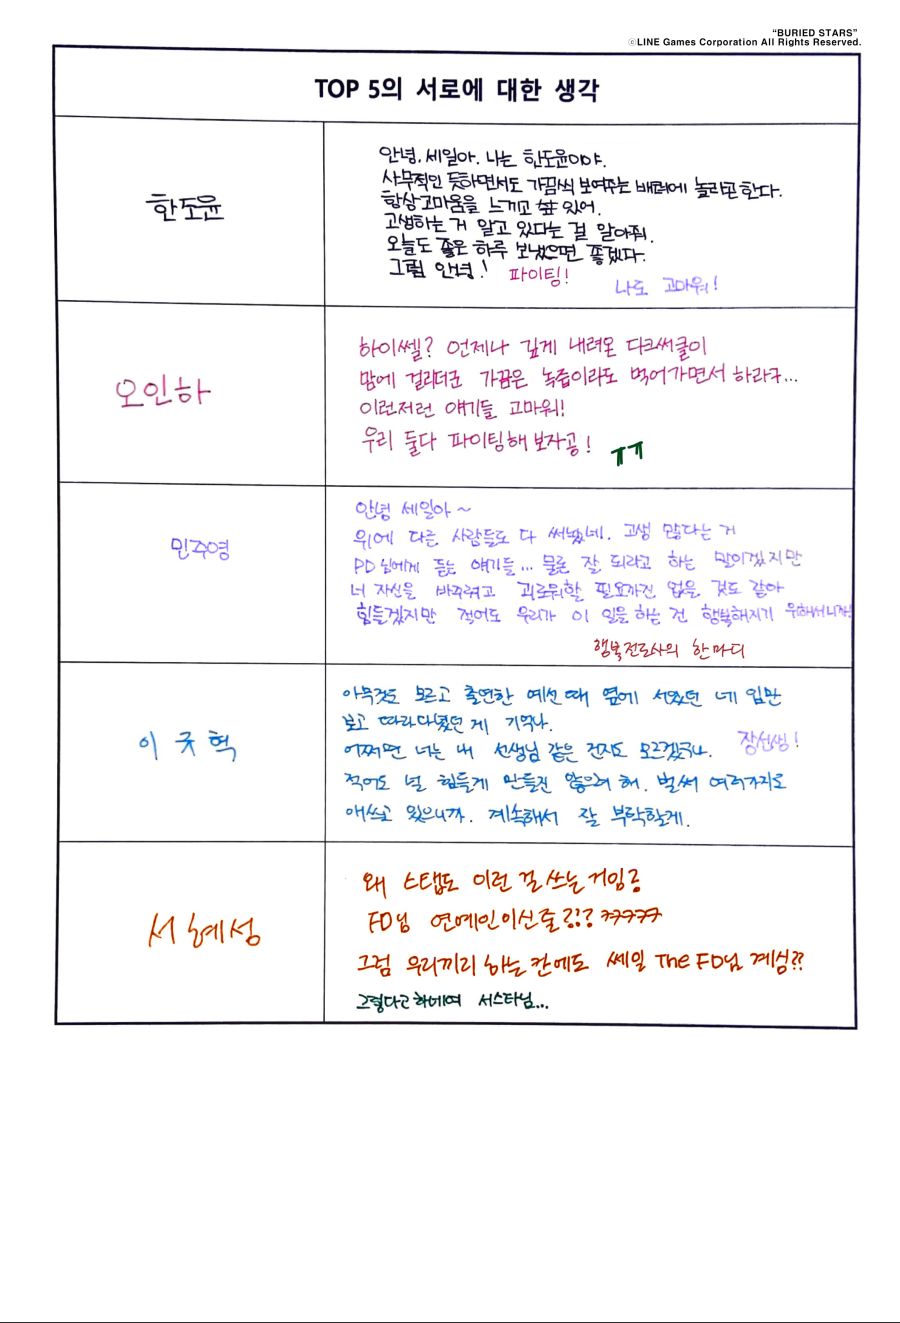 "BURIED STARS"
ⓒLINE Games Corporation All Rights Reserved.
TOP 5의 서로에 대한 생각
한도윤
안녕. 세일아. 나는 한도윤이야.
사무적인 듯하면서도 가끔씩 보여주는 배려에 놀라곤 한다.
항상 고마움을 느끼고 있어.
고생하는 거 알고 있다는 걸 알아줘.
오늘도 좋은 하루 보냈으면 좋겠다.
그럼 안녕! 파이팅!
나도 고마워!
오인하
하이쎌? 언제나 깊게 내려온 다크써클이
맘에 걸리더군 가끔은 녹즙이라도 먹어가면서 하라구...
이런저런 얘기들 고마워!
우리 둘다 파이팅해보자공! ㅠㅠ
민주영
안녕 세일아~
위에 다른 사람들도 다 써놨네. 고생 많다는 거
PD님에게 듣는 얘기들... 물론 잘 되라고 하는 말이겠지만
너 자신을 바꾸려고 괴로워할 필요까진 없을 것도 같아
힘들겠지만 적어도 우리가 이 일을 하는 건 행복해지기 위해서니까!
행복전도사의 한마디
이규혁
아무것도 모르고 출연한 예선 때 옆에 서있던 네 입만
보고 따라다녔던 게 기억나.
어쩌면 너는 내 선생님 같은 건지도 모르겠구나. 장선생!
적어도 널 힘들게 만들진 않으려 해. 벌써 여러가지로
애쓰고 있으니까. 계속해서 잘 부탁할게.
서혜성
왜 스탭도 이런 걸 쓰는 거임?
FD님 연예인이신줄?!? ㅋㅋㅋㅋㅋ
그럼 우리끼리 하는 칸에도 쎄일 The FD님 계심??
그렇다고 하네여 서스타님...